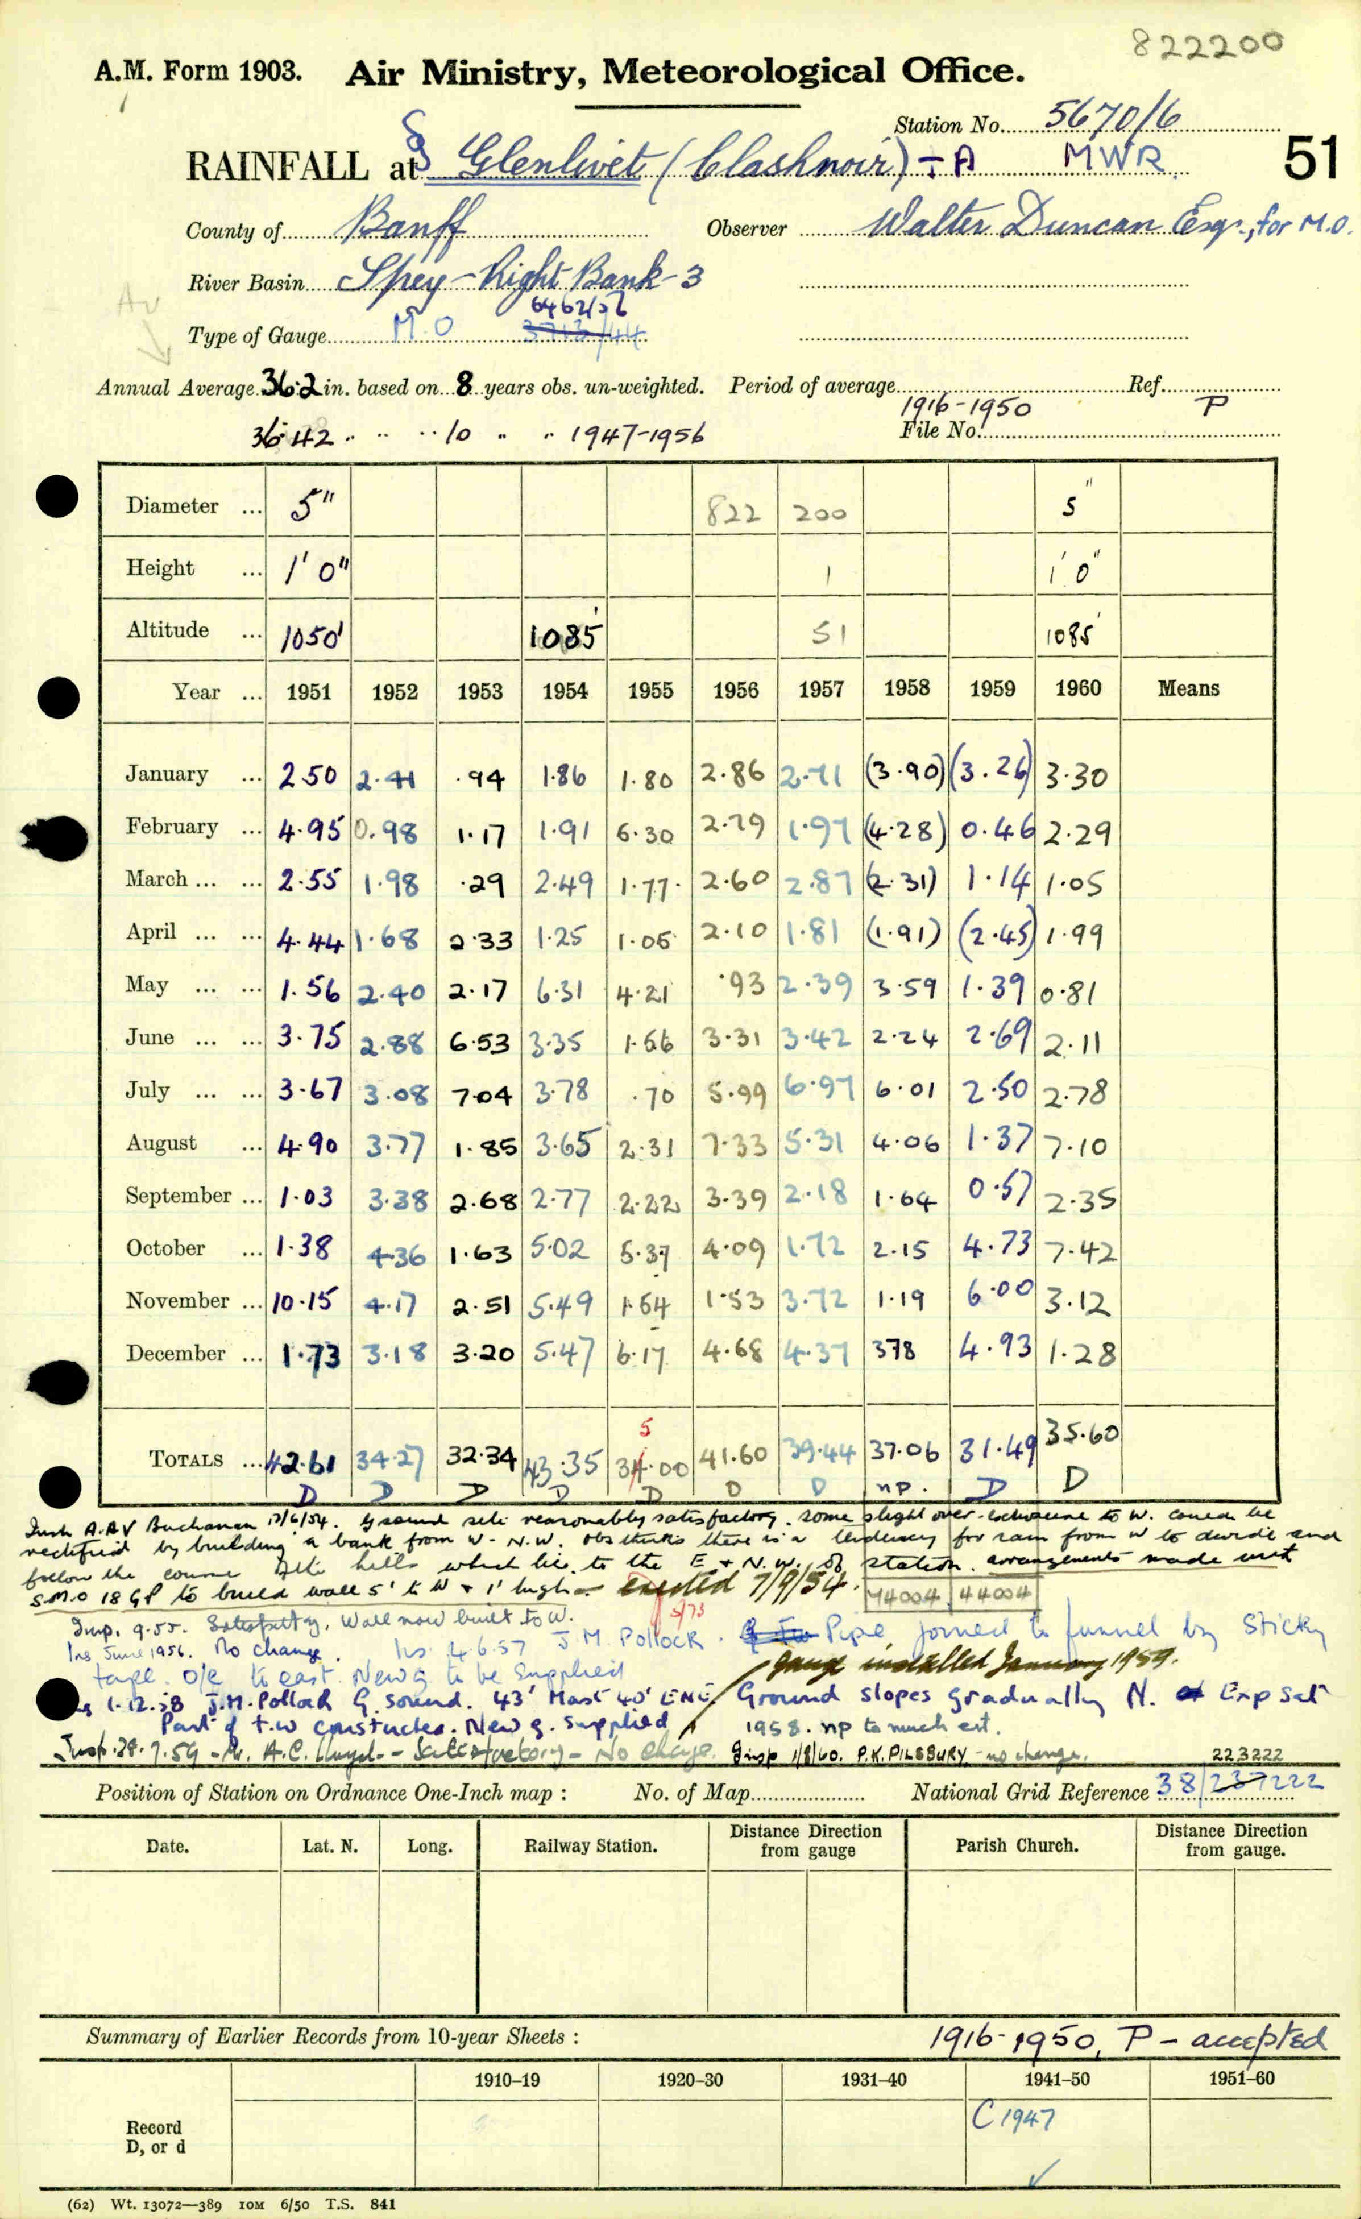 822200
A.M. Form 1903. Air Ministry, Meteorological Office.
Station No. 5670/6
RAINFALL at § Glenlivet (Clashnoir) - A MWR 51
County of Banff Observer Walter Duncan Esq., for M.O.
River Basin Spey - Right Bank - 3
6462/52
Type of Gauge M.O 3713/44
Av
Annual Average 36.2 in. based on 8 years obs. un-weighted. Period of average 1916-1950 Ref. P
36.42 " " " 10 " " 1947-1956 File No.
Diameter ... 5" 822 200 5"
Height ... 1' 0" 1 1' 0"
Altitude ... 1050' 1085' 51 1085'
Year ... 1951 1952 1953 1954 1955 1956 1957 1958 1959 1960 Means
January ... 2.50 2.41 .94 1.86 1.80 2.86 2.71 (3.90) (3.26) 3.30
February ... 4.95 0.98 1.17 1.91 6.30 2.79 1.97 (4.28) 0.46 2.29
March ... ... 2.55 1.98 .29 2.49 1.77 2.60 2.87 (2.31) 1.14 1.05
April ... ... 4.44 1.68 2.33 1.25 1.05 2.10 1.81 (1.91) (2.45) 1.99
May ... ... 1.56 2.40 2.17 6.31 4.21 .93 2.39 3.59 1.39 0.81
June ... ... 3.75 2.88 6.53 3.35 1.66 3.31 3.42 2.24 2.69 2.11
July ... ... 3.67 3.08 7.04 3.78 .70 5.99 6.97 6.01 2.50 2.78
August ... 4.90 3.77 1.85 3.65 2.31 7.33 5.31 4.06 1.37 7.10
September ... 1.03 3.38 2.68 2.77 2.22 3.39 2.18 1.64 0.57 2.35
October ... 1.38 4.36 1.63 5.02 5.37 4.09 1.72 2.15 4.73 7.42
November ... 10.15 4.17 2.51 5.49 1.54 1.53 3.72 1.19 6.00 3.12
December ... 1.73 3.18 3.20 5.47 6.17 4.68 4.37 378 4.93 1.28
5
TOTALS ... 42.61 34.27 32.34 43.35 34.00 41.60 39.44 37.06 31.49 35.60
D D D D D D D np. D D
A.A.V Buchanan 17/6/54. Ground site reasonably satisfactory. some slight over-exposure to W. could be
rectified by building a bank from W - N.W. Obs thinks there is a tendency for rain from W to divide and
follow the course of the hills which lie to the E + N.W. of station. arrangements made with
S.M.O 18 GP to build wall 5' to W + 1' high - erected 7/9/54. 44004 44004
5/73
Insp. 9.55. Satisfactory, Wall now built to W.
Ins June 1956. No change. Ins 4.6.57 J.M. Pollock. Pipe joined to funnel by sticky
tape. O/e to east. New g to be supplied gauge installed January 1959.
1.12.58 J.M. Pollock G. sound. 43' Mast 40' ENE. Ground slopes gradually N. Exp sat
Part of t.w constructed. New g. supplied 1958. np to much est.
Insp. 28.7.59 - Mr. A.C. Lloyd - Satisfactory - No change. Insp 1/8/60. P.K. PILSBURY - no change.
223222
Position of Station on Ordnance One-Inch map : No. of Map National Grid Reference 38/237222
Date. Lat. N. Long. Railway Station. Distance Direction from gauge Parish Church. Distance Direction from gauge.
Summary of Earlier Records from 10-year Sheets : 1916-1950, P - accepted
1910–19 1920–30 1931–40 1941–50 1951–60
Record D, or d C 1947
(62) Wt. 13072—389 10M 6/50 T.S. 841